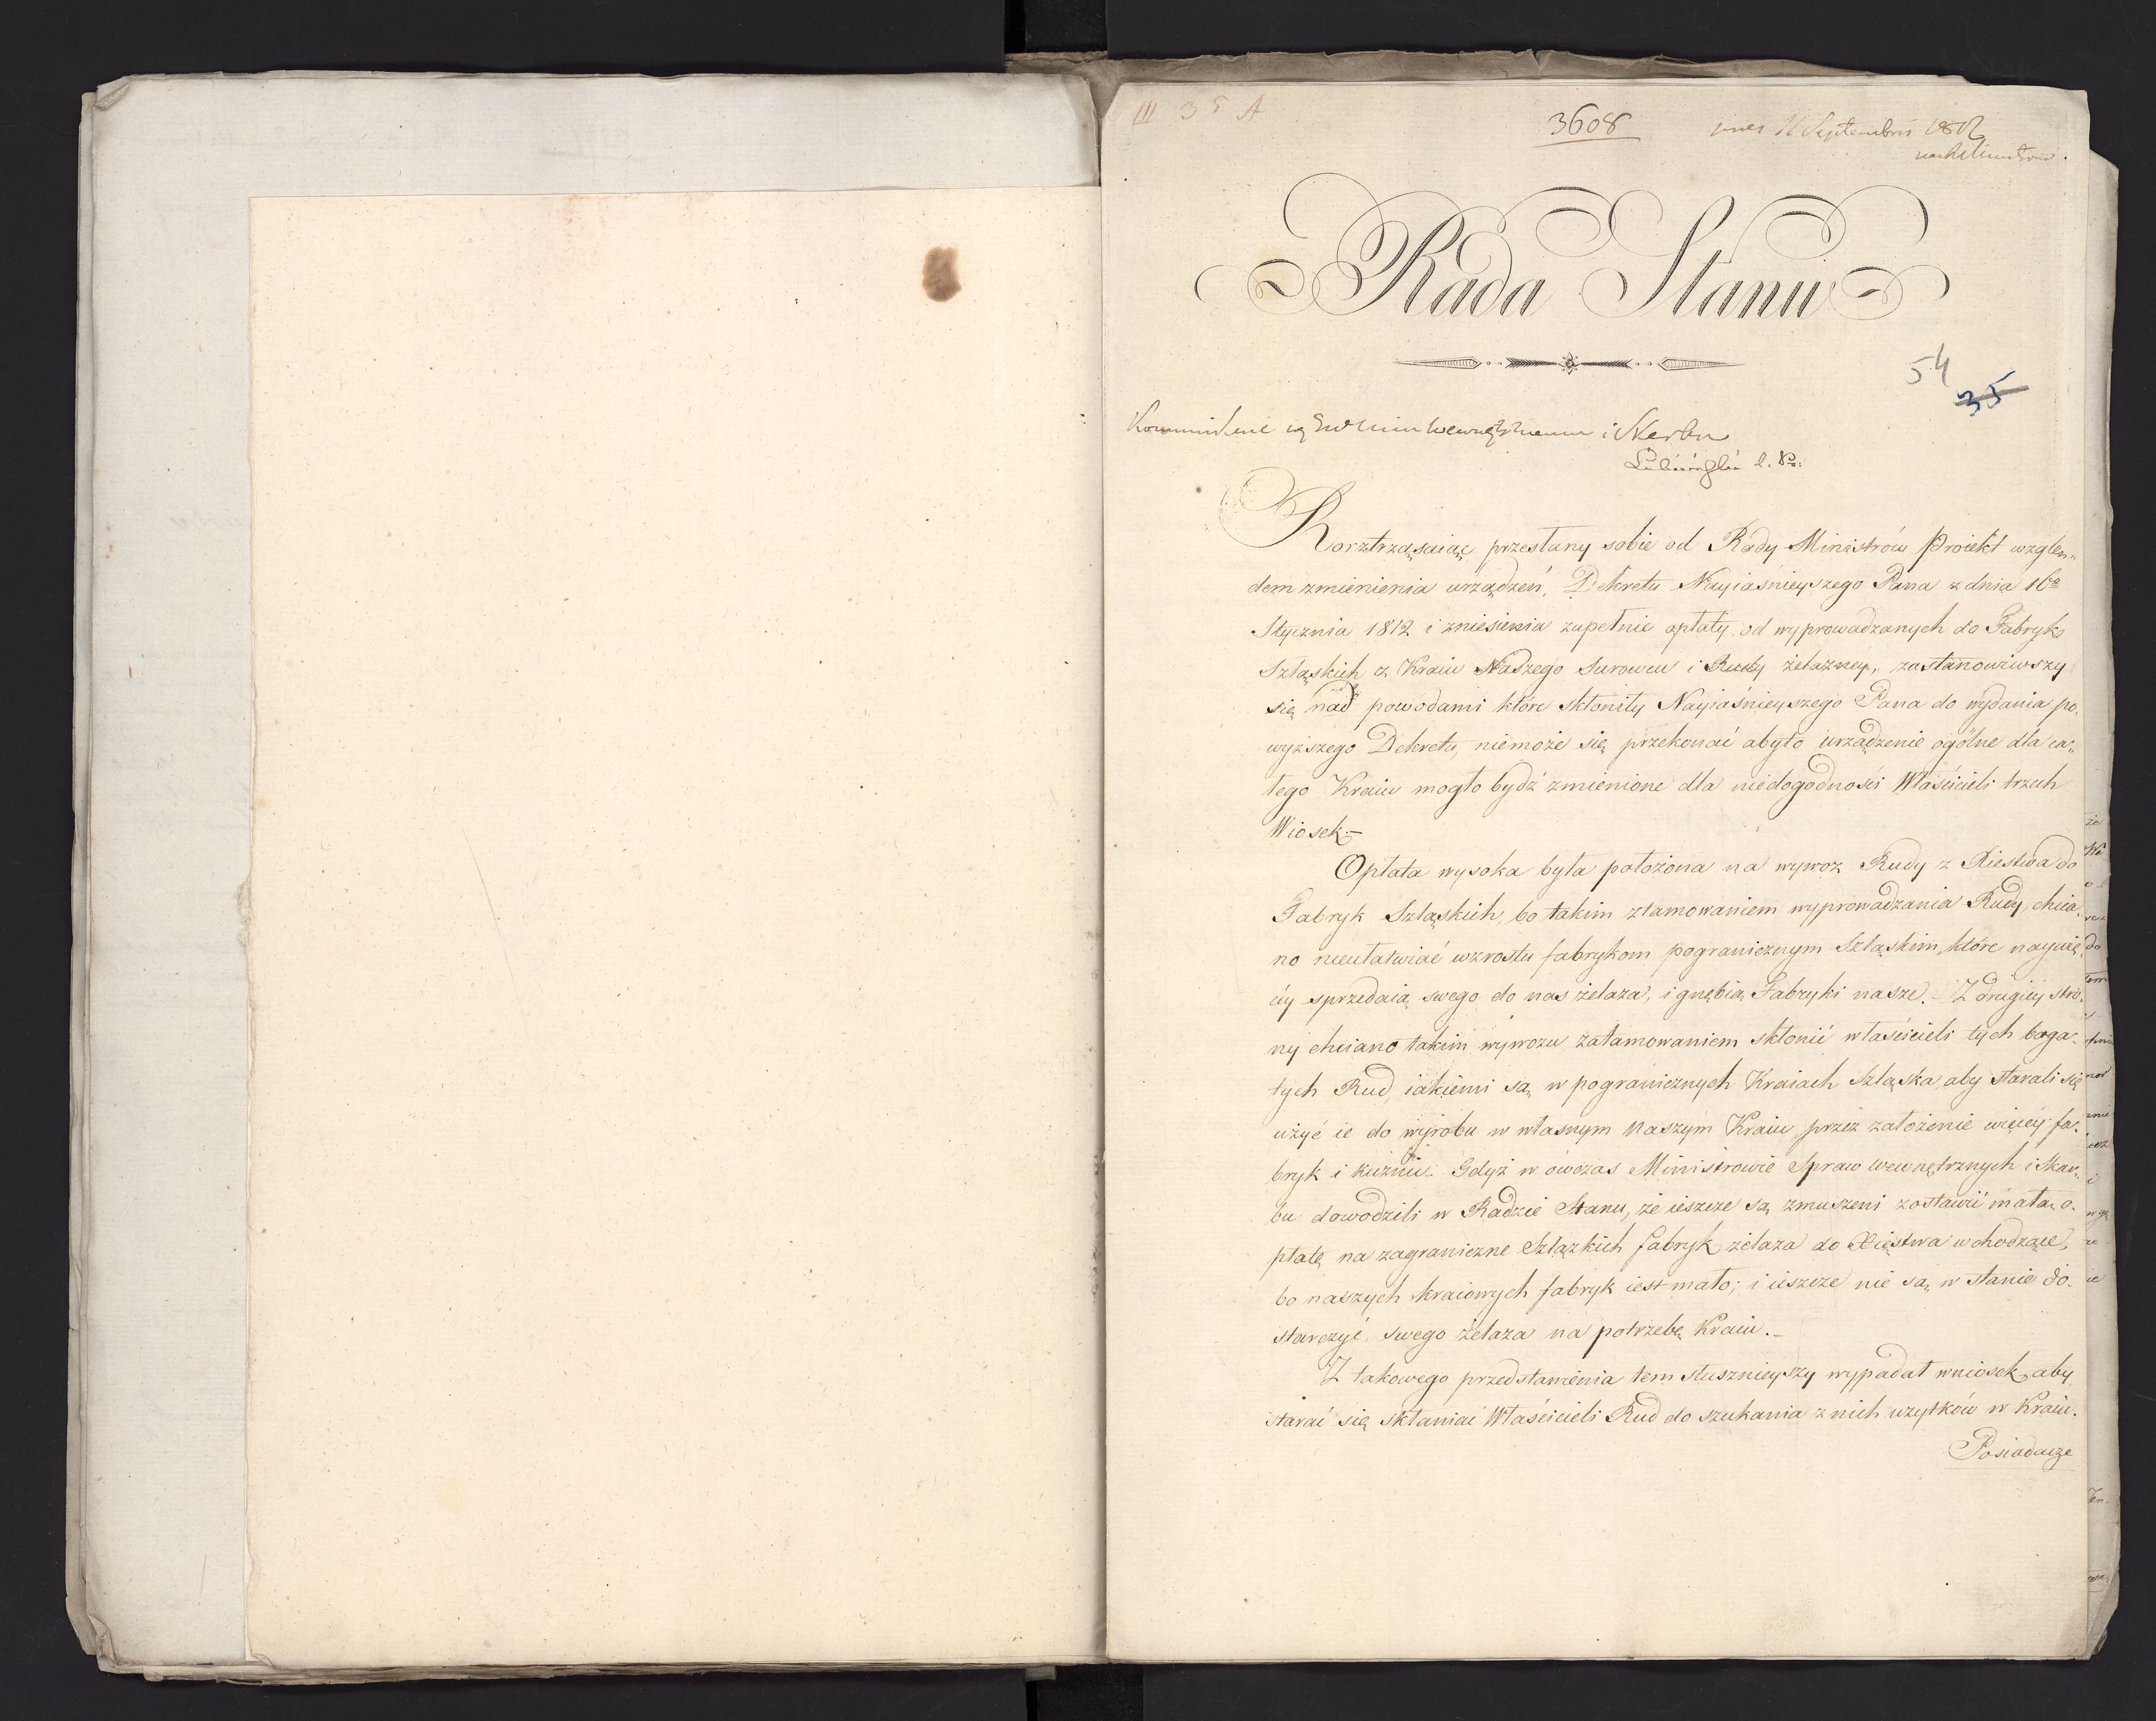 III 35 A
3608
11 Septembris 1812
Rada Stanu
54
35
i Skarbu
Rorztrząsaiąc przesłany sobie od Rady Ministrów Proiekt wzglen„
dem zmienienia urządzeń, Dekretu Nayiaśnieyszego Pana z dnia 16º
Stycznia 1812 i zniesienia zupełnie opłaty od wyprowadzanych do Fabryk
Szląskich z Kraiu Naszego Surowcu i Rudy żelazney, zastanowiwszy
się nad powodami które skłoniły Nayiaśnieyszego Pana do wydania po„
wyższego Dekretu, niemoże się przekonać aby to urządzenie ogólne dla ca„
łego Kraiu mogło bydź zmienione dla niedogodności Właścicieli trzech
Wiosek.–
Opłata wysoka była położona na wywoz Rudy z Xiestwa do
Fabryk Szląskich, bo takim ztamowaniem wyprowadzania Rudy, chcia„
no nieułatwiać wzrostu fabrykom pogranicznym Szląskim, które naywię„
cey sprzedaią swego do nas żelaza, i gnębią Fabryki nasze.– Z drugiey stro„
ny chciano takim wywozu zatamowaniem skłonić właścicieli tych boga„
tych Rud, iakiemi są w pogranicznych Kraiach Szląska, aby starali się
użyć ie do wyrobu w własnym Naszym Kraiu, przez założenie więcey fa„
bryk i kuźnic. Gdyż w ówczas Ministrowie Spraw wewnętrznych i Skar„
bu dowodzili w Radzie Stanu, że ieszcze są zmuszeni zostawić małą o„
płatę na zagraniczne Szlązkich fabryk żelaza do Xięstwa wchodzące,
bo naszych kraiowych fabryk iest mało; i ieszcze nie są w stanie do„
starczyć swego żelaza na potrzebę Kraiu.–
Z takowego przedstawienia tem słusznieyszy wypadał wniosek, aby
starać się skłaniać Właścicieli Rud do szukania z nich użytków w Kraiu.
Posiadacze